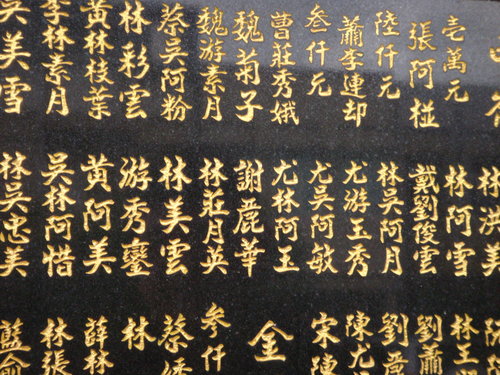 壹萬元
張阿椪
陸仟元
蕭李連却
叁仟元
曹莊秀娥
魏菊子
魏游素月
蔡吳阿粉
林彩雲
黃林枝葉
李林素月
吳美雪
林洪美
林阿雪
戴劉俊雲
林吳阿月
尤游玉秀
尤吳阿敏
尤林阿玉
謝麗華
林莊月英
林美雲
游秀鑾
黃阿美
吳林阿惜
林吳忠美
林王
劉蕭
劉
陳尤
宋陳
金
叁仟
蔡
林
薛林
林張
藍俞